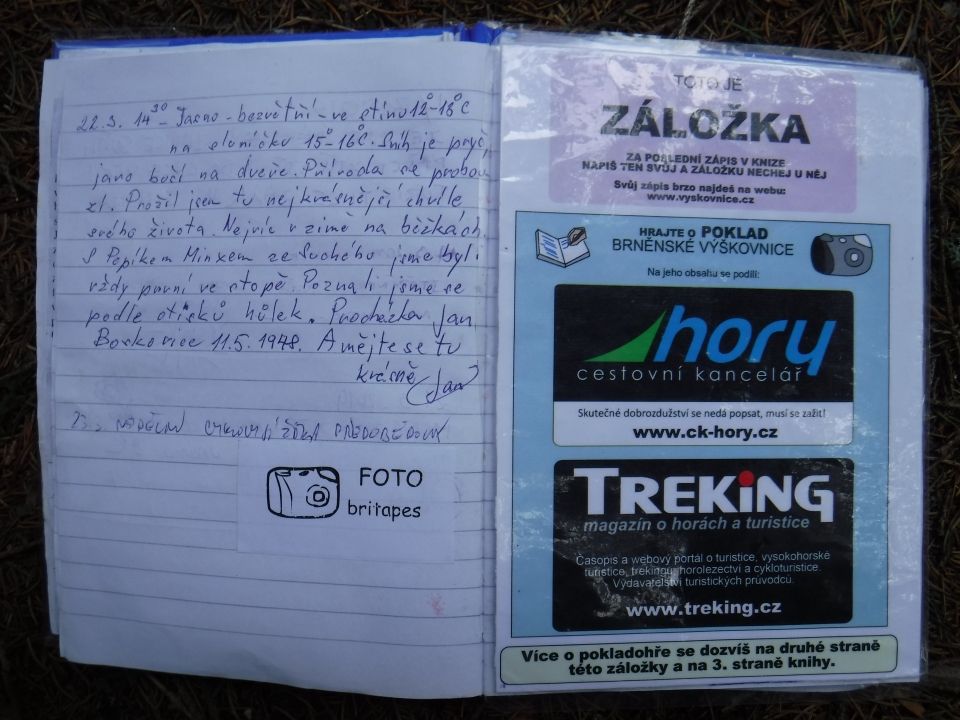 22.3. 14³⁰ - Jasno - bezvětří - ve stínu 12°-13°C
na sluníčku 15°-16°C. Sníh je pryč,
jaro buší na dveře. Příroda se probou
zí. Prožil jsem tu nejkrásnější chvíle
svého života. Nejvíc v zimě na běžkách.
S Pepíkem Minxem ze Suchého jsme byli
vždy první ve stopě. Poznali jsme se
podle otisků hůlek. Procházka Jan,
Boskovice 11.5. 1948. A mějte se tu
krásně Jan
23.3
FOTO
britapes
TOTO JE
ZÁLOŽKA
ZA POSLEDNÍ ZÁPIS V KNIZE.
NAPIŠ TEN SVŮJ A ZÁLOŽKU NECHEJ U NĚJ
Svůj zápis brzo najdeš na webu:
www.vyskovnice.cz
HRAJTE O POKLAD
BRNĚNSKÉ VÝŠKOVNICE
Na jeho obsahu se podílí:
hory
cestovní kancelář
Skutečné dobrozdužství se nedá popsat, musí se zažít!
www.ck-hory.cz
TREKiNG
magazín o horách a turistice
Časopis a webový portál o turistice, vysokohorské
turistice, trekingu, horolezectví a cykloturistice.
Vydavatelství turistických průvodců.
www.treking.cz
Více o pokladohře se dozvíš na druhé straně
této záložky a na 3. straně knihy.